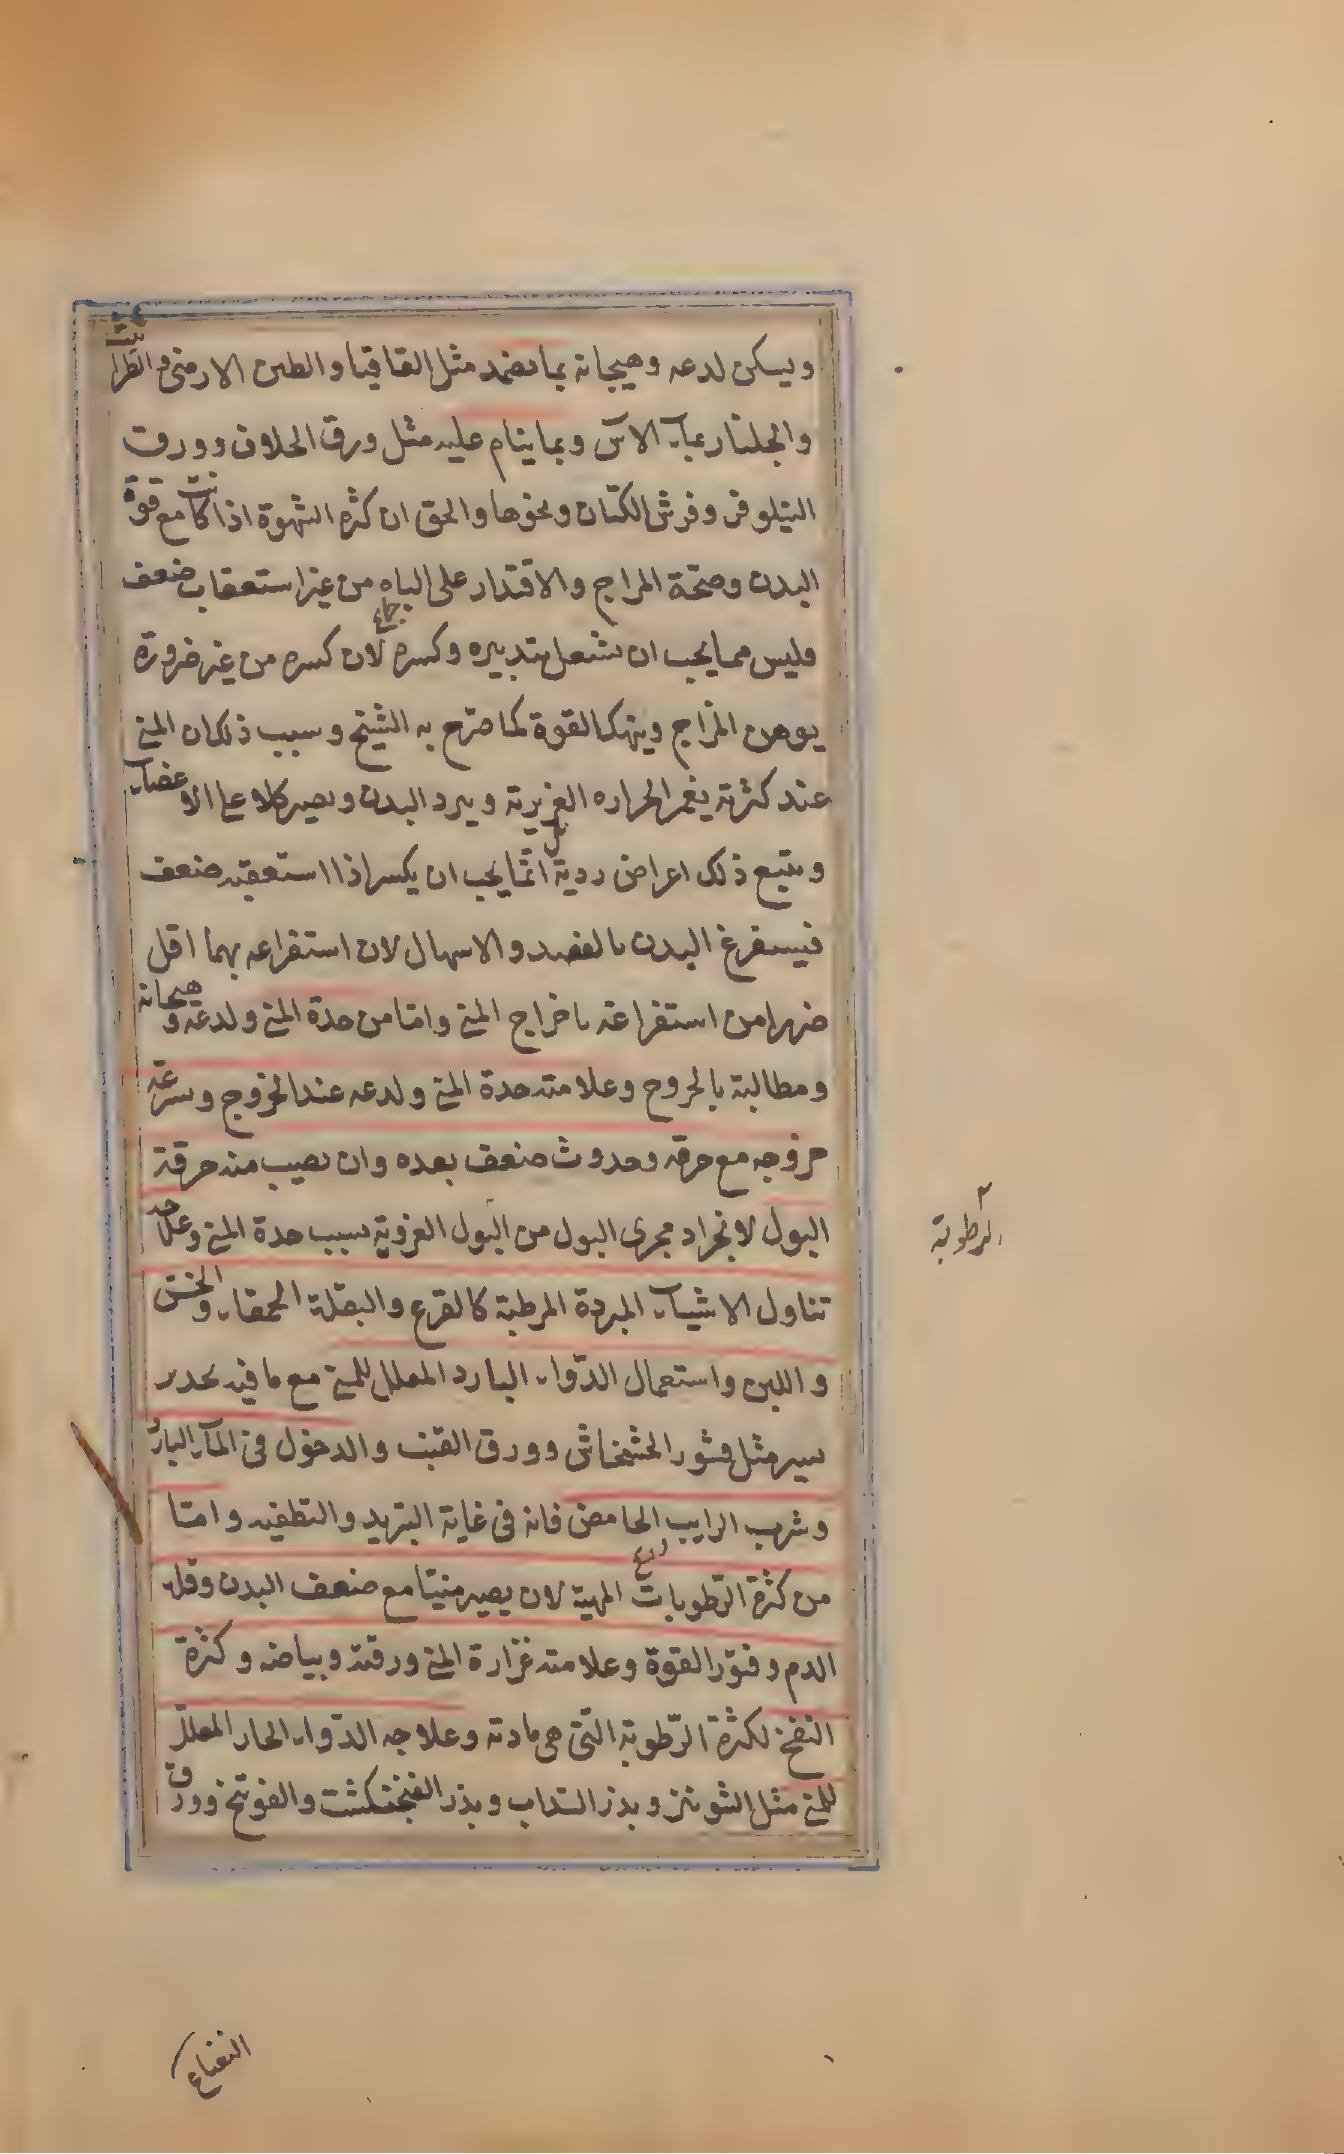 ويسكن لدعه وهيجانه بما يضمد مثل القاقيا والطين الارمني والطراثيث
والجلنار بماء الاس وبما ينام عليه مثل ورق الخلاف وورق
النيلوفر وفرش الكتان ونحوها والحق ان كثره الشهوة اذا كانت مع قوة
البدن وصحة المزاج والاقتدار على الباه من غير استعقاب ضعف
جماع
فليس مما يجب ان يشتغل بتدبيره وكسره لان كسره من غير ضرورة
يوهن المزاج وينهك القوة كما صرح به الشيخ وسبب ذلك ان المني
عند كثرته يغمر الحراره الغريزية ويبرد البدن ويصير كلا على الاعضاء
ويتبع ذلك اعراض ردية بل انما يجب ان يكسر اذا استعقبه ضعف
فيستفرغ البدن بالفصد والاسهال لان استفراغه بهما اقل
ضررا من استفراغه باخراج المني واما من حدة المني ولدعه وهيجانه
ومطالبة بالخروج وعلامته حدة المني ولدعه عند الخروج وسرعة
خروجه مع حرقه وحدوث ضعف بعده وان يصيب منه حرقة
البول لانجراد مجرى البول من البول الغروية بسبب حدة المني وعلاجه
تناول الاشياء المبردة المرطبة كالقرع والبقلة الحمقاء والخس
واللبن واستعمال الدواء البارد المقلل للمني مع ما فيه تخدير
يسير مثل قشور الخشخاش وورق القنب والدخول في الماء البارد
وشرب الرايب الحامض فانه في غاية التبريد والتطفيه واما
من كثرة الرطوبات المهية لان يصير منيا مع ضعف البدن وقله
الدم وفتور القوة وعلامته غزارة المني ورقته وبياضه وكثرة
النفخ لكثرة الرطوبة التي هي مادته وعلاجه الدواء الحار المقلل
للمني مثل الشونيز وبذر السداب وبذر الفنجنكشت والفوتنج وورق
الرطوبة
النعناع